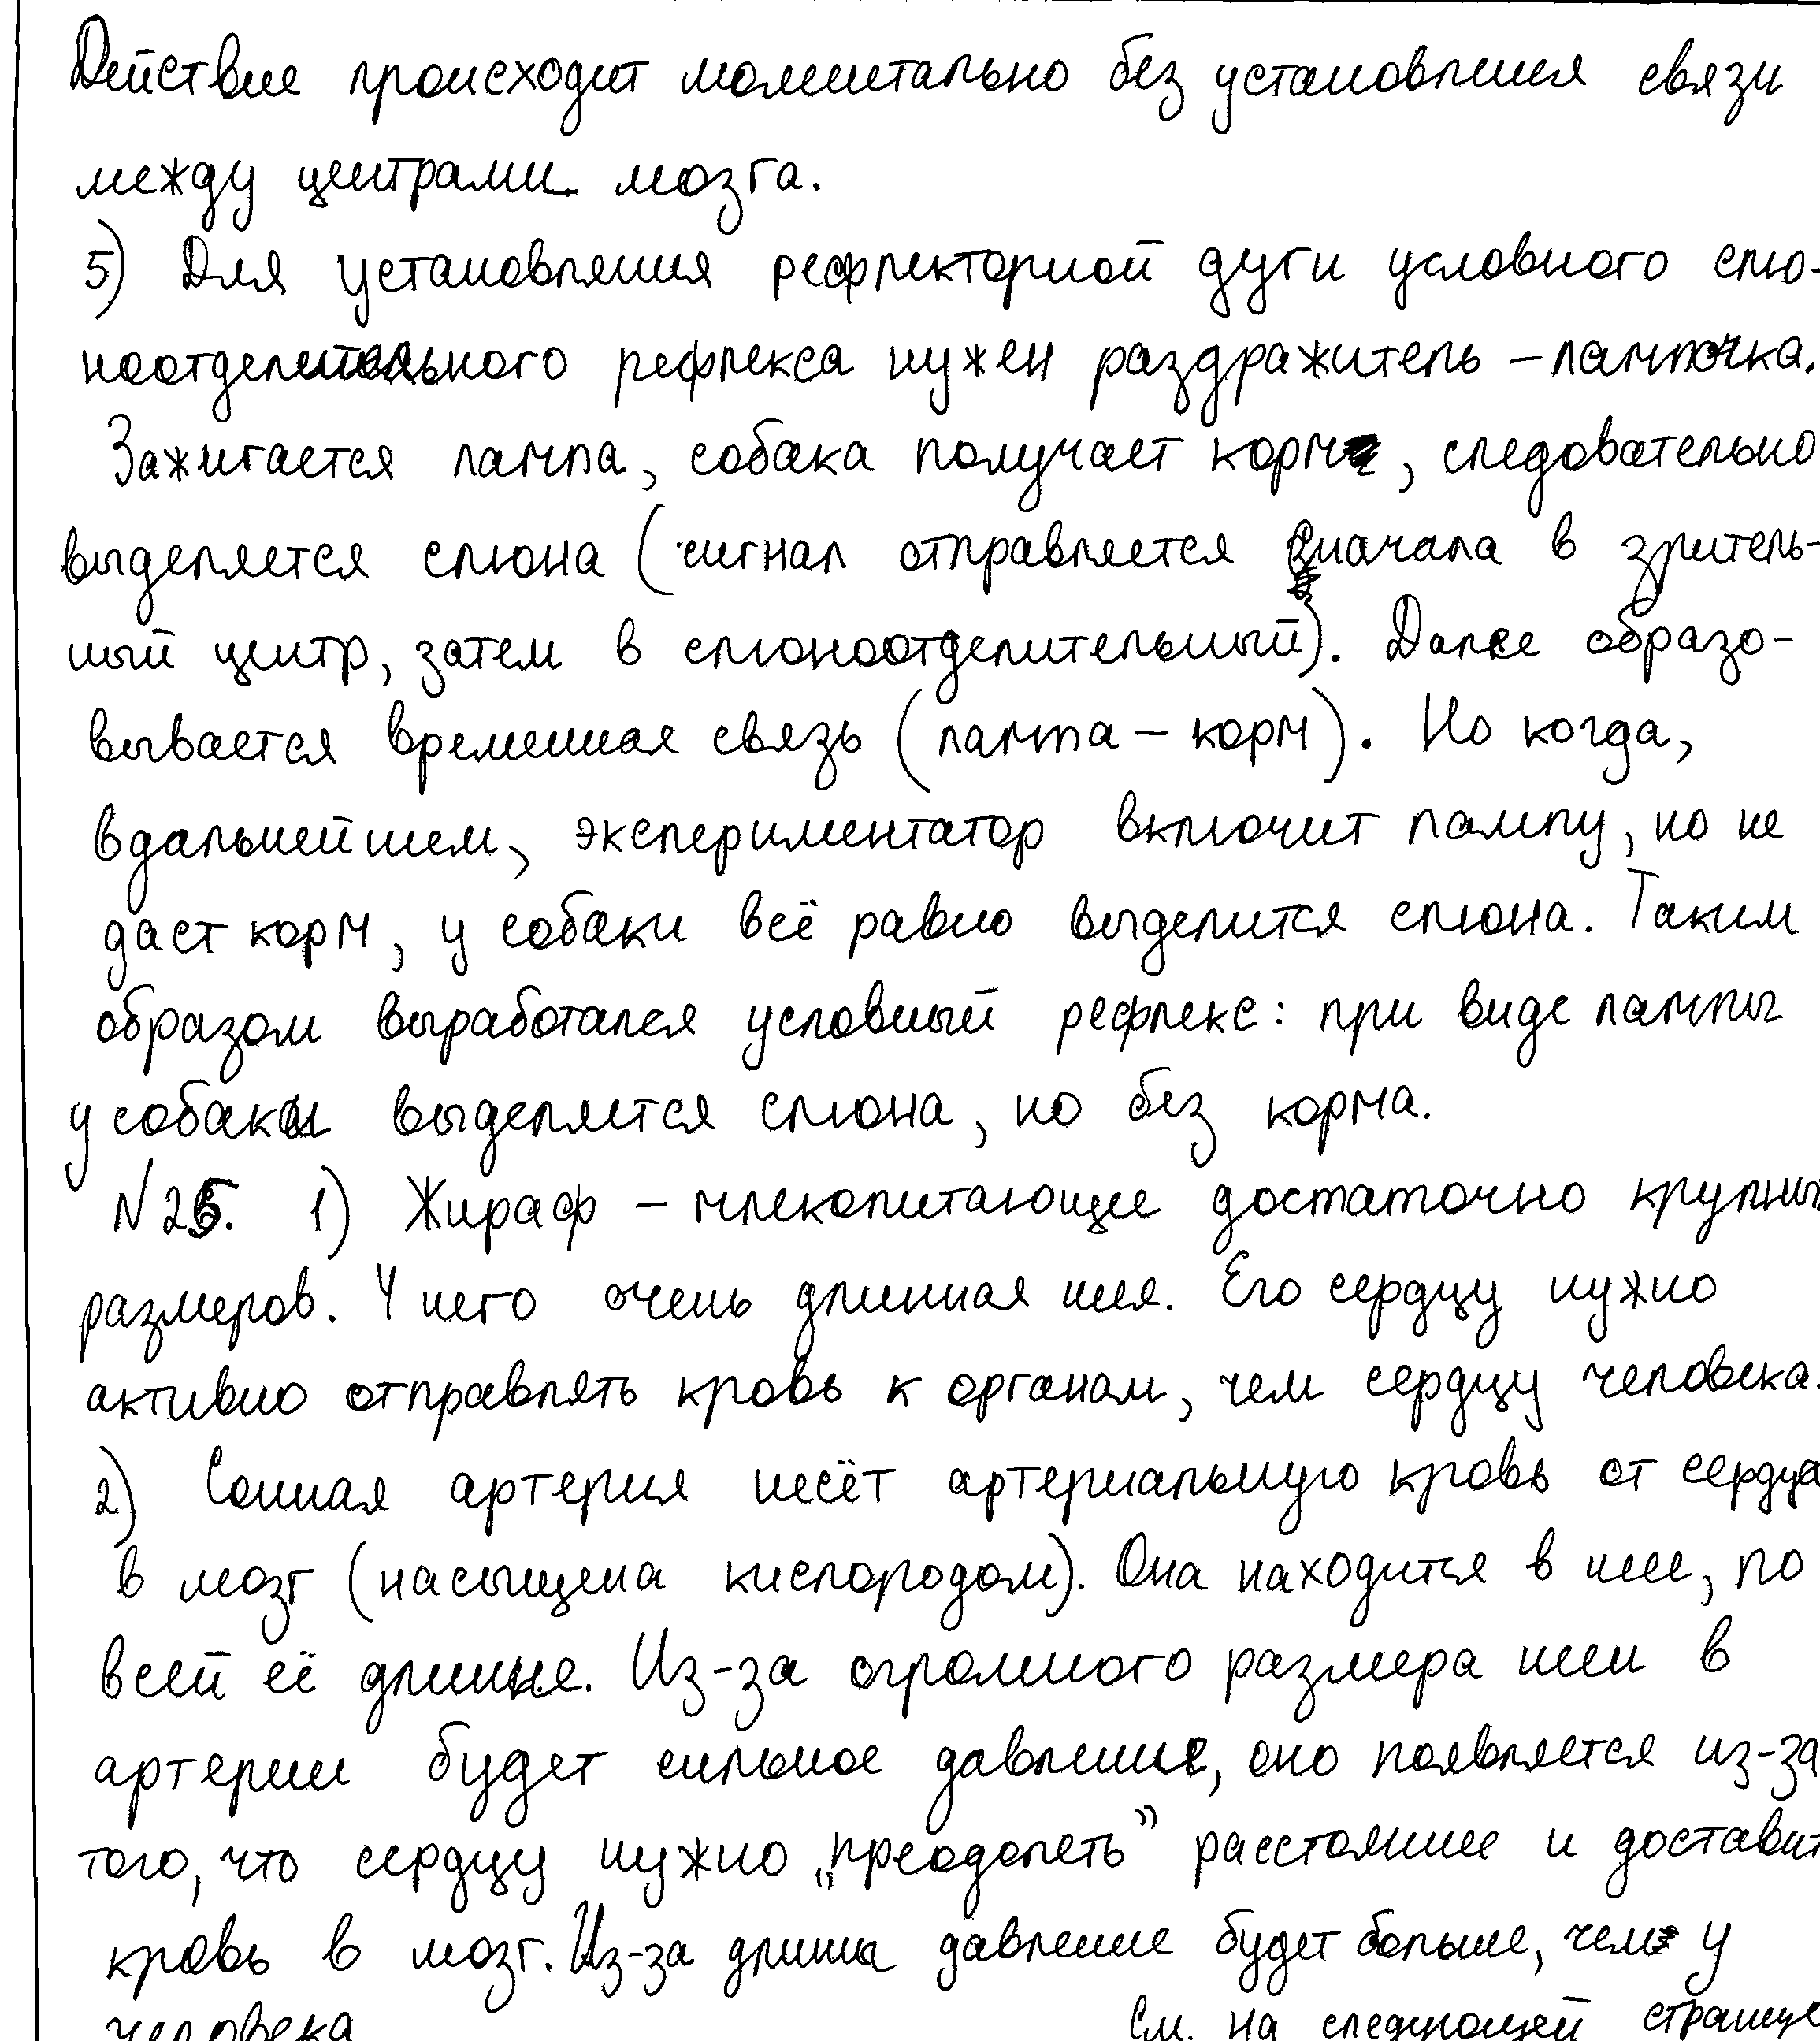 Действие происходит моментально без установления связи
между центрами мозга.
5) Для установления рефлекторной дуги условного слю-
ноотделительного рефлекса нужен раздражитель – лампочка.
Зажигается лампа, собака получает корм, следовательно
выделяется слюна (сигнал отправляется сначала в зритель-
ный центр, затем в слюноотделительный). Далее образо-
вывается временная связь (лампа – корм). Но когда,
вдальнейшем, экспериментатор включит лампу, но не
даст корм, у собаки всё равно выделится слюна. Таким
образом выработался условный рефлекс: при виде лампы
у собаки выделяется слюна, но без корма.
№25. 1) Жираф – млекопитающее достаточно крупны
размеров. У него очень длинная шея. Его сердцу нужно
активно отправлять кровь к органам, чем сердцу человека.
2) Сонная артерия несёт артериальную кровь от сердца
в мозг (насыщена кислородом). Она находится в шее, по
всей её длине. Из-за огромного размера шеи в
артерии будет сильное давление, оно появляется из-за
того, что сердцу нужно „преодолеть” расстояние и доставит
кровь в мозг. Из-за длины давление будет больше, чем у
человека См. на следующей странице